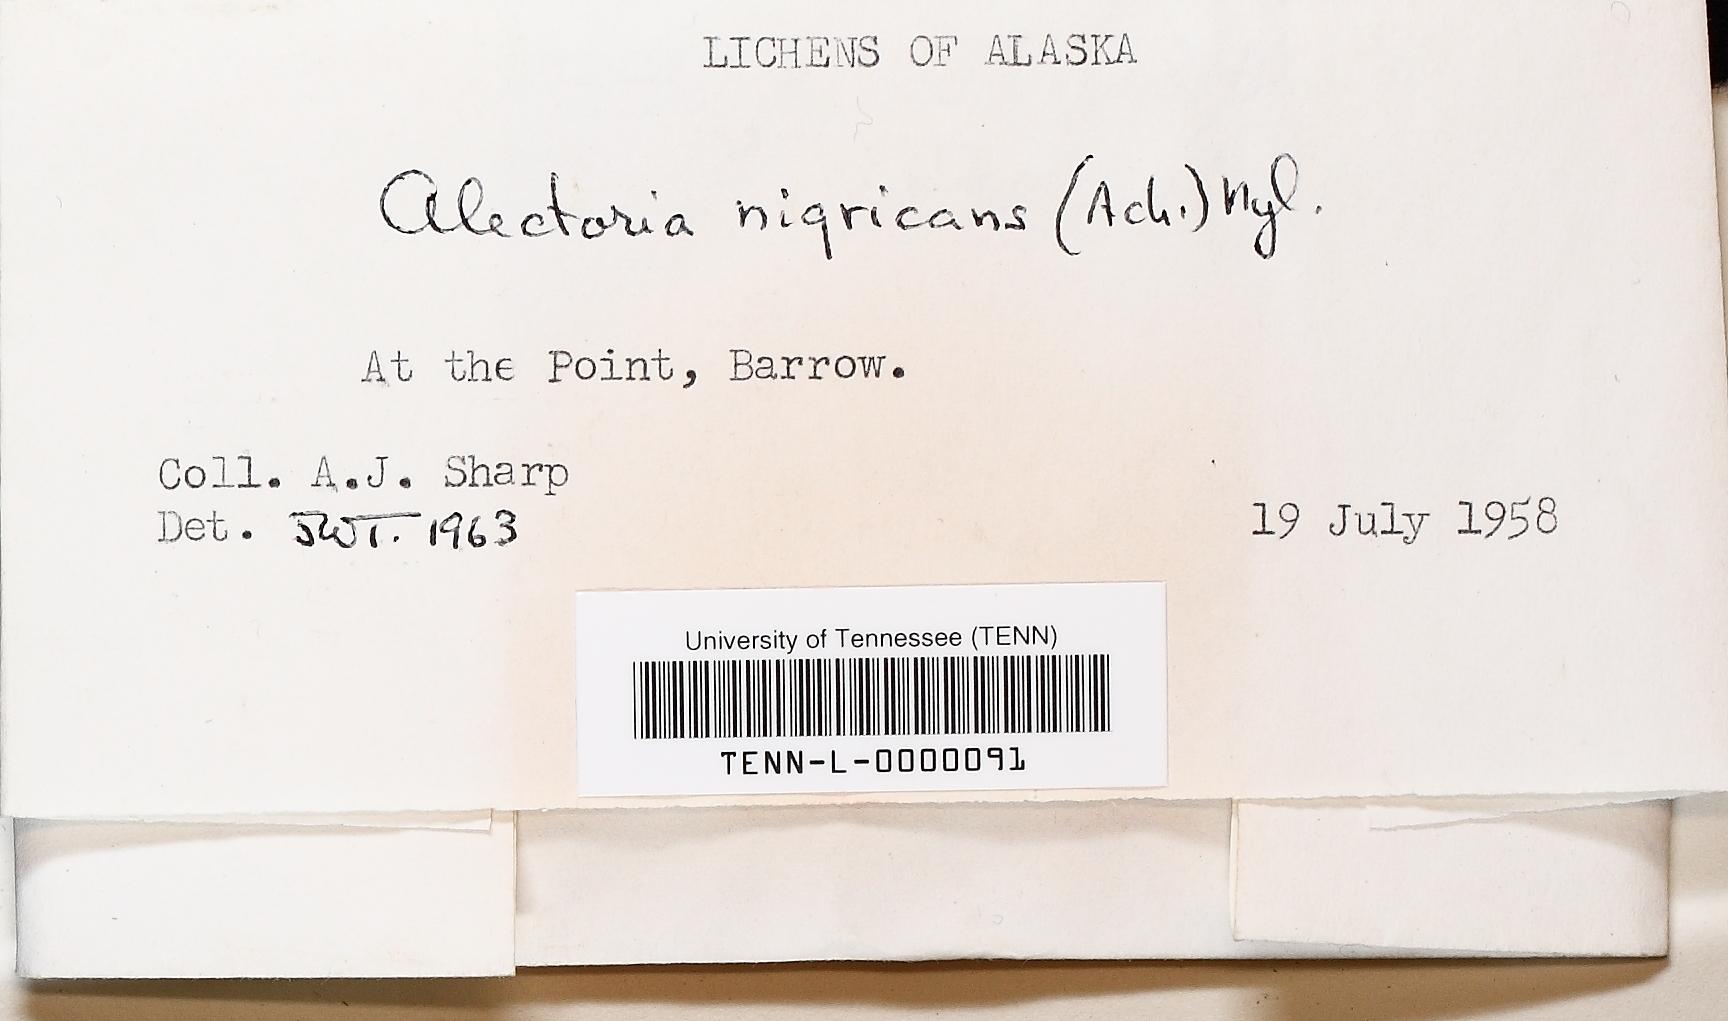 LICHENS OF ALASKA
Alectoria nigricans (Ach.) Nyl.
At the Point, Barrow.
Coll. A.J. Sharp
Det. JWT. 1963
19 July 1958
University of Tennessee (TENN)
TENN-L-0000091